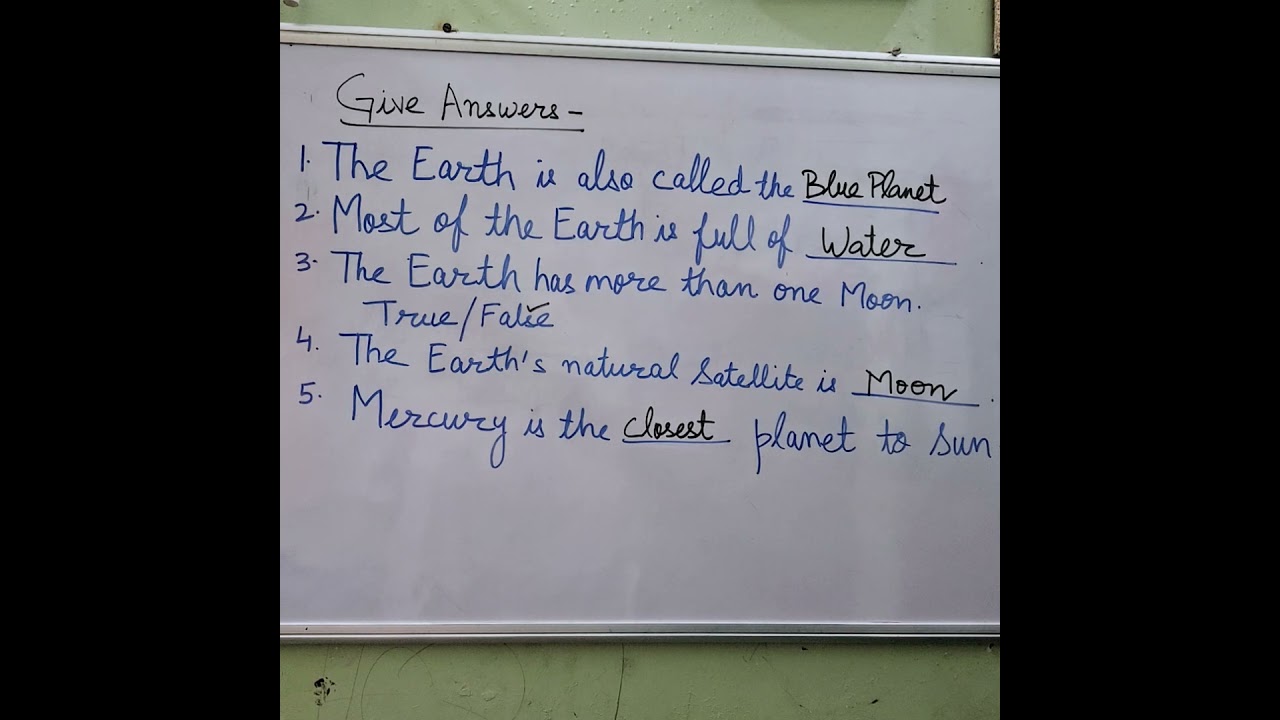 Give Answers-
1. The Earth is also called the Blue Planet
2. Most of the Earth is full of Water.
3. The Earth has more than one Moon.
True/False ✓
4. The Earth's natural Satellite is Moon.
5. Mercury is the closest planet to sun